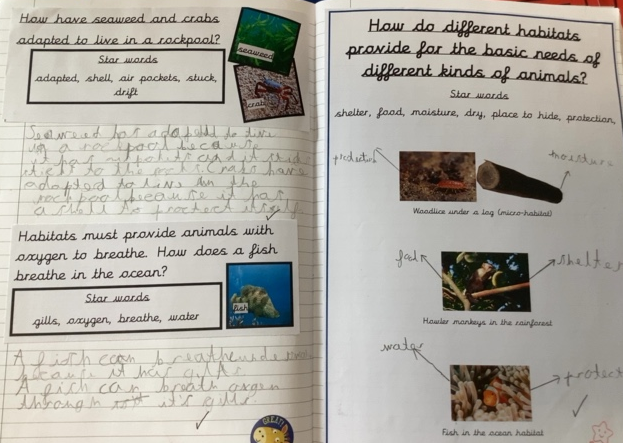 How have seaweed and crabs
adapted to live in a rockpool?
Star words
adapted, shell, air pockets, stuck,
drift
seaweed
crab
Seaweed has adapted to live
in a rockpool because
it has air pockets and it
sticks to the rocks crabs have
adapted to live in the
rockpool because it has
a shell to protect itself
Habitats must provide animals with
oxygen to breathe. How does a fish
breathe in the ocean?
Star words
gills, oxygen, breathe, water
fish
A fish can breathe
because it has gills
A fish can breath
through it's gills.
GREAT
How do different habitats
provide for the basic needs of
different kinds of animals?
Star words
shelter, food, moisture, dry, place to hide, protection,
moisture
Woodlice under a log (micro-habitat)
food
shelter
Howler monkeys in the rainforest
water
protect
Fish in the ocean habitat